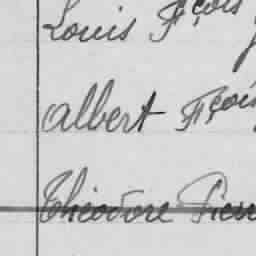 Louis Fçois
Albert Fçois
Théodore Pierr